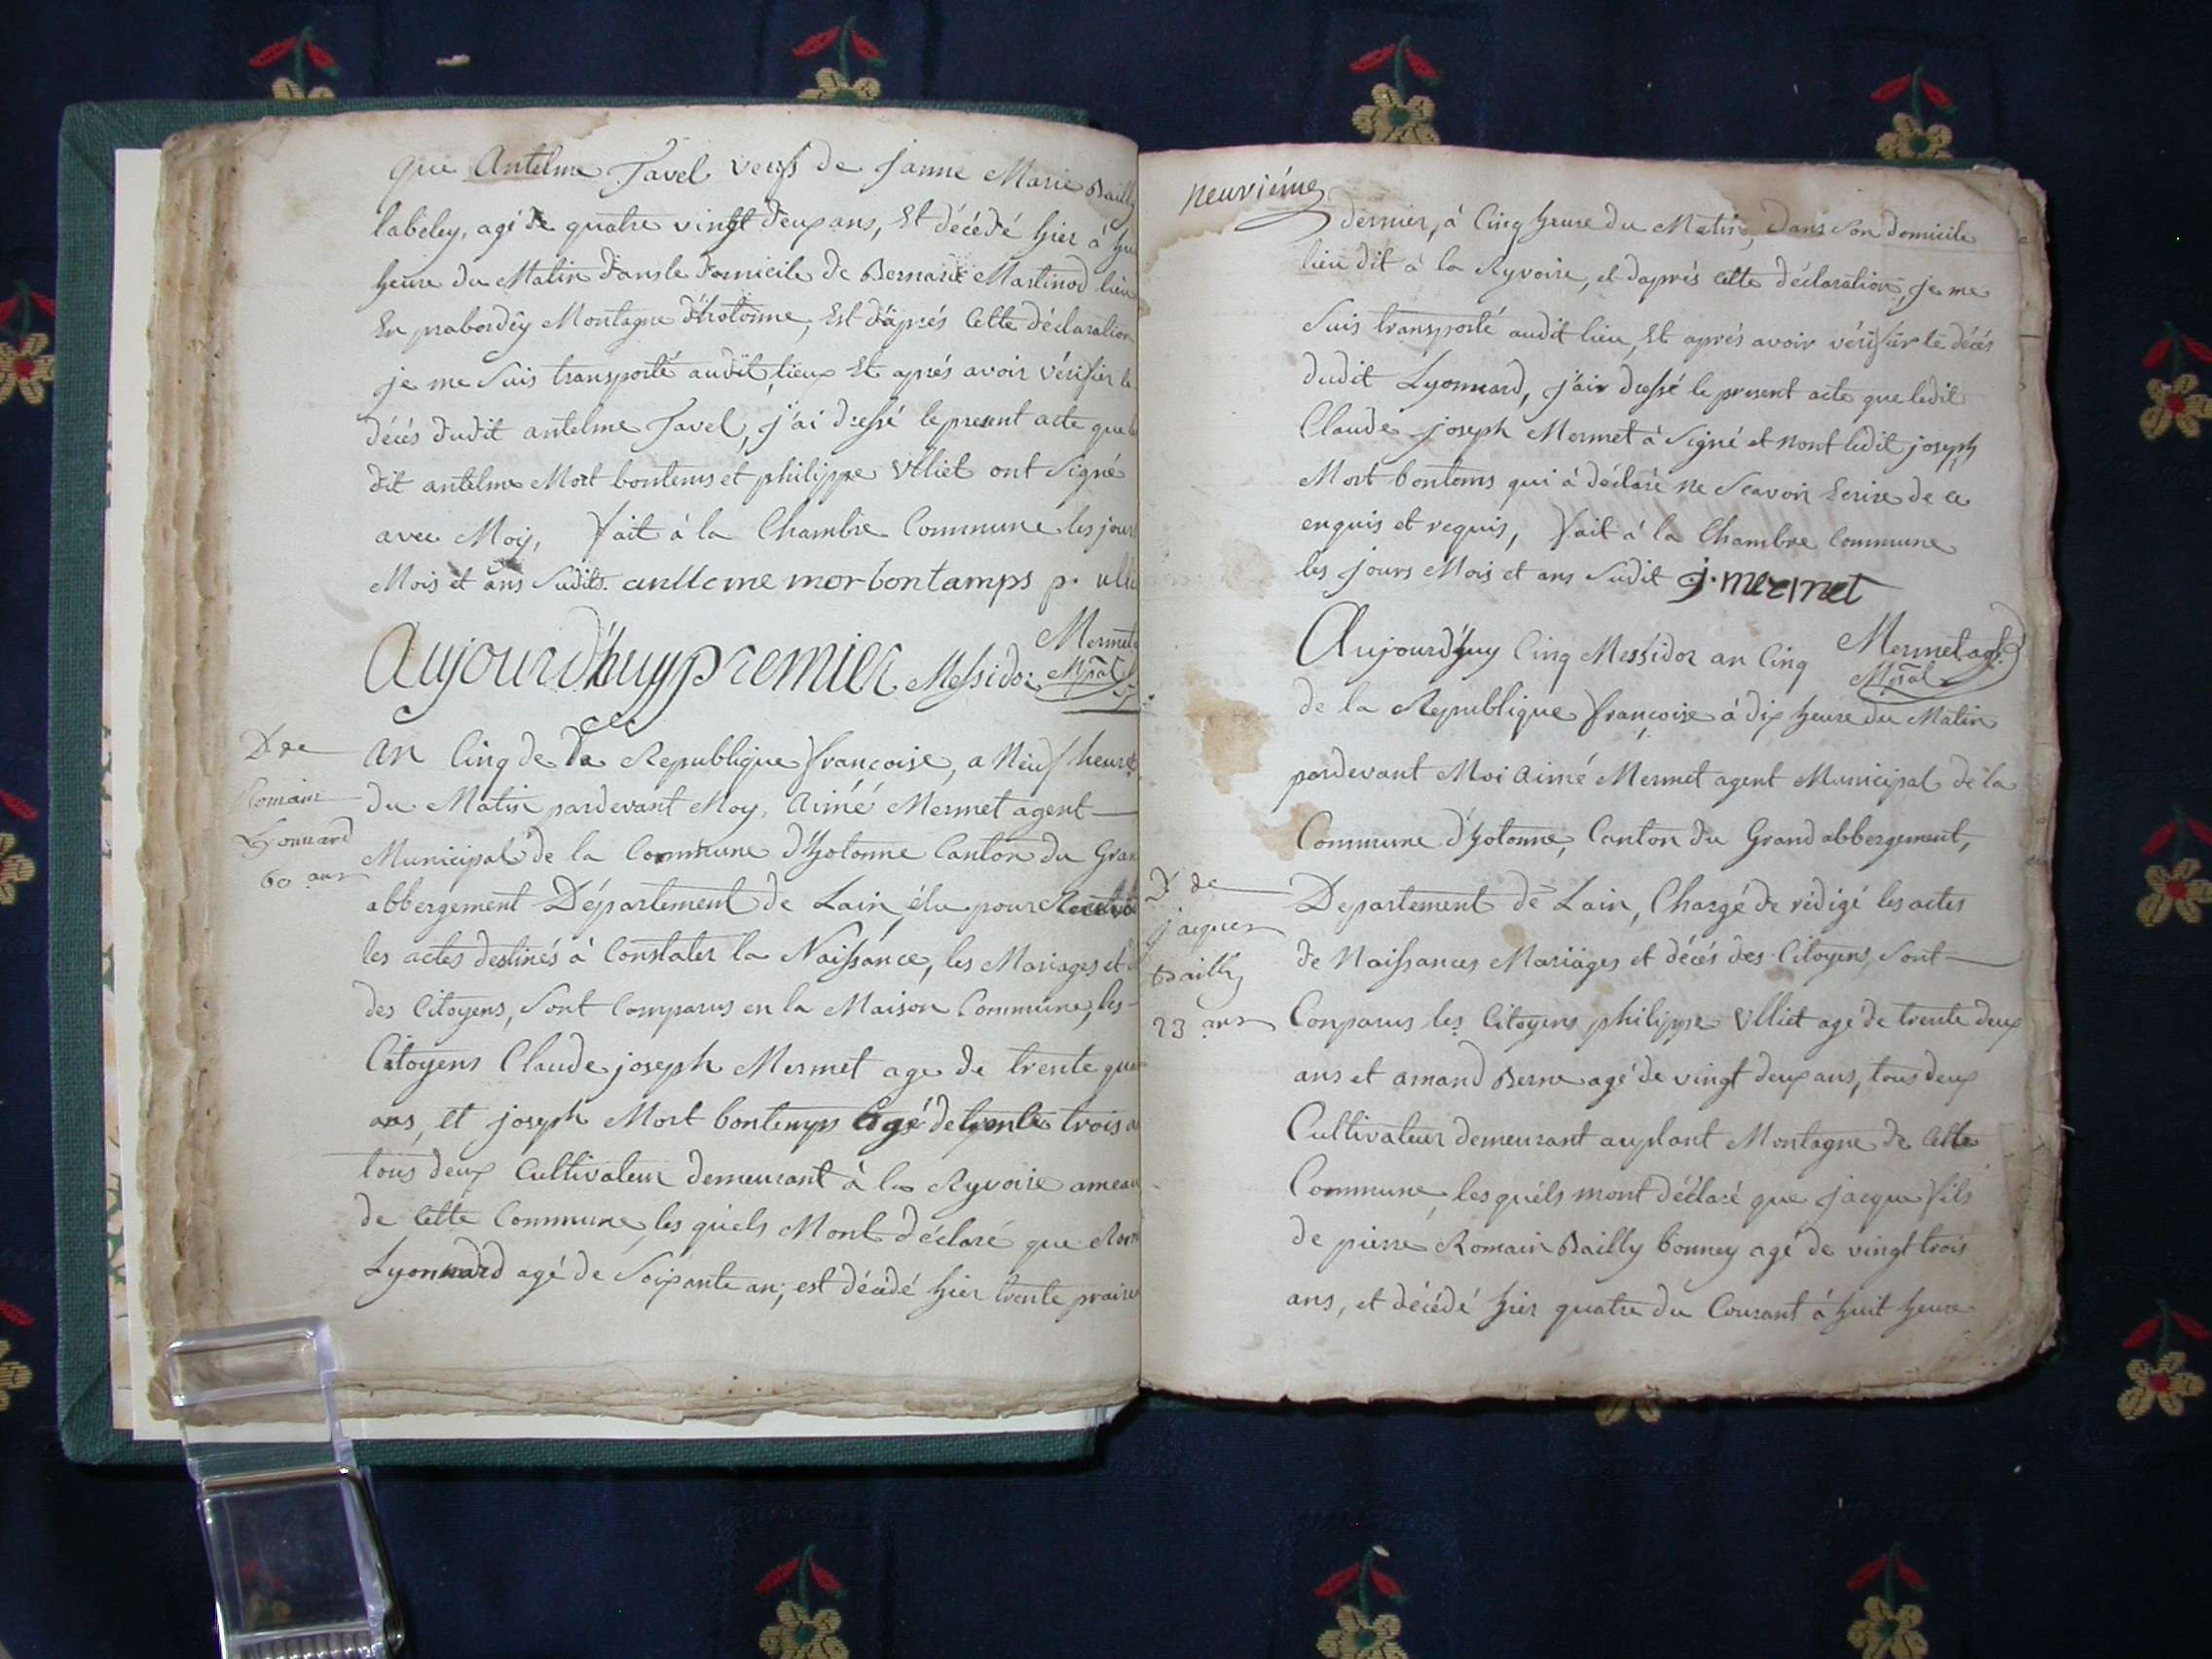 que Antelme Favel veufs de Janne Marie Bailly
labeley, agé de quatre vingt deux ans, Et décédé hier à
heure du Matin dansle domicile de Bernard Martinod lieu
En prabordey Montagne d'hotonne, Est d'après Cette déclaration
je me Suis transporté audit lieux Et aprés avoir vérifier le
décés dudit antelme Favel, j'ai dressé le present acte que le
dit antelme Mort bontems et philippe Ulliet ont Signé
avec Moy, fait à la Chambre Commune les jour
Mois et ans Sudits. anttcme morbontamps p. ulli
Mermet
Mpal
Aujourd'huy premier Messidor
D de
Romain
Lyonnard
60 ans
an Cinq de la Republique françoise, a Neuf heure
du Matin pardevant Moy, Aimé Mermet agent
Municipal de la Commune d'hotonne Canton du Gran
abbergement Département de Lain, élu pour
les actes destinés à Constater la Naissance, les Mariages et d
des Citoyens, Sont Comparus en la Maison Commune, les
Citoyens Claude joseph Mermet age de trente qua
ans, et joseph Mort bontemps agé de trente trois a
tous deux Cultivateur demeurant à la Ryvoire ameau
de Cette Commune, les quels Mont déclaré que Rom
Lyonnard agé de Soixante an; est décédé hier trente prair
neuviéme
dernier, à Cinq heure du Matin, dans Son domicile
lieu dit à la Ryvoire, et d'aprés cette déclaration, je me
Suis transporté audit lieu, Et aprés avoir vérifier le décés
dudit Lyonnard, j'air dressé le present acte que ledit
Claude joseph Mermet à Signé et nont ledit joseph
Mort bontems qui à déclaré ne Scavoir Ecrire de ce
enquis et requis, fait à la Chambre Commune
les jours Mois et ans Sudit j. mermet
Mermet agt
Mpal
Aujourd'huy Cinq Messidor an Cinq
de la Republique françoise à dix heure du Matin
pardevant Moi Aimé Mermet agent Municipal de la
Commune d'hotonne, Canton du Grand abbergement,
D de
jacques
Bailly
23 ans
Departement de Lain, Chargé de rédigé les actes
de Naissances Mariages et décés des Citoyens, Sont
Conparus les Citoyens philippe Ulliet agé de trente deux
ans et amand Berne agé de vingt deux ans, tous deux
Cultivateur demeurant auplant Montagne de Cette
Commune, les quéls mont déclaré que jacque fils
de pierre Romain Bailly bonney agé de vingt trois
ans, et décédé hier quatre du Courant à huit heure